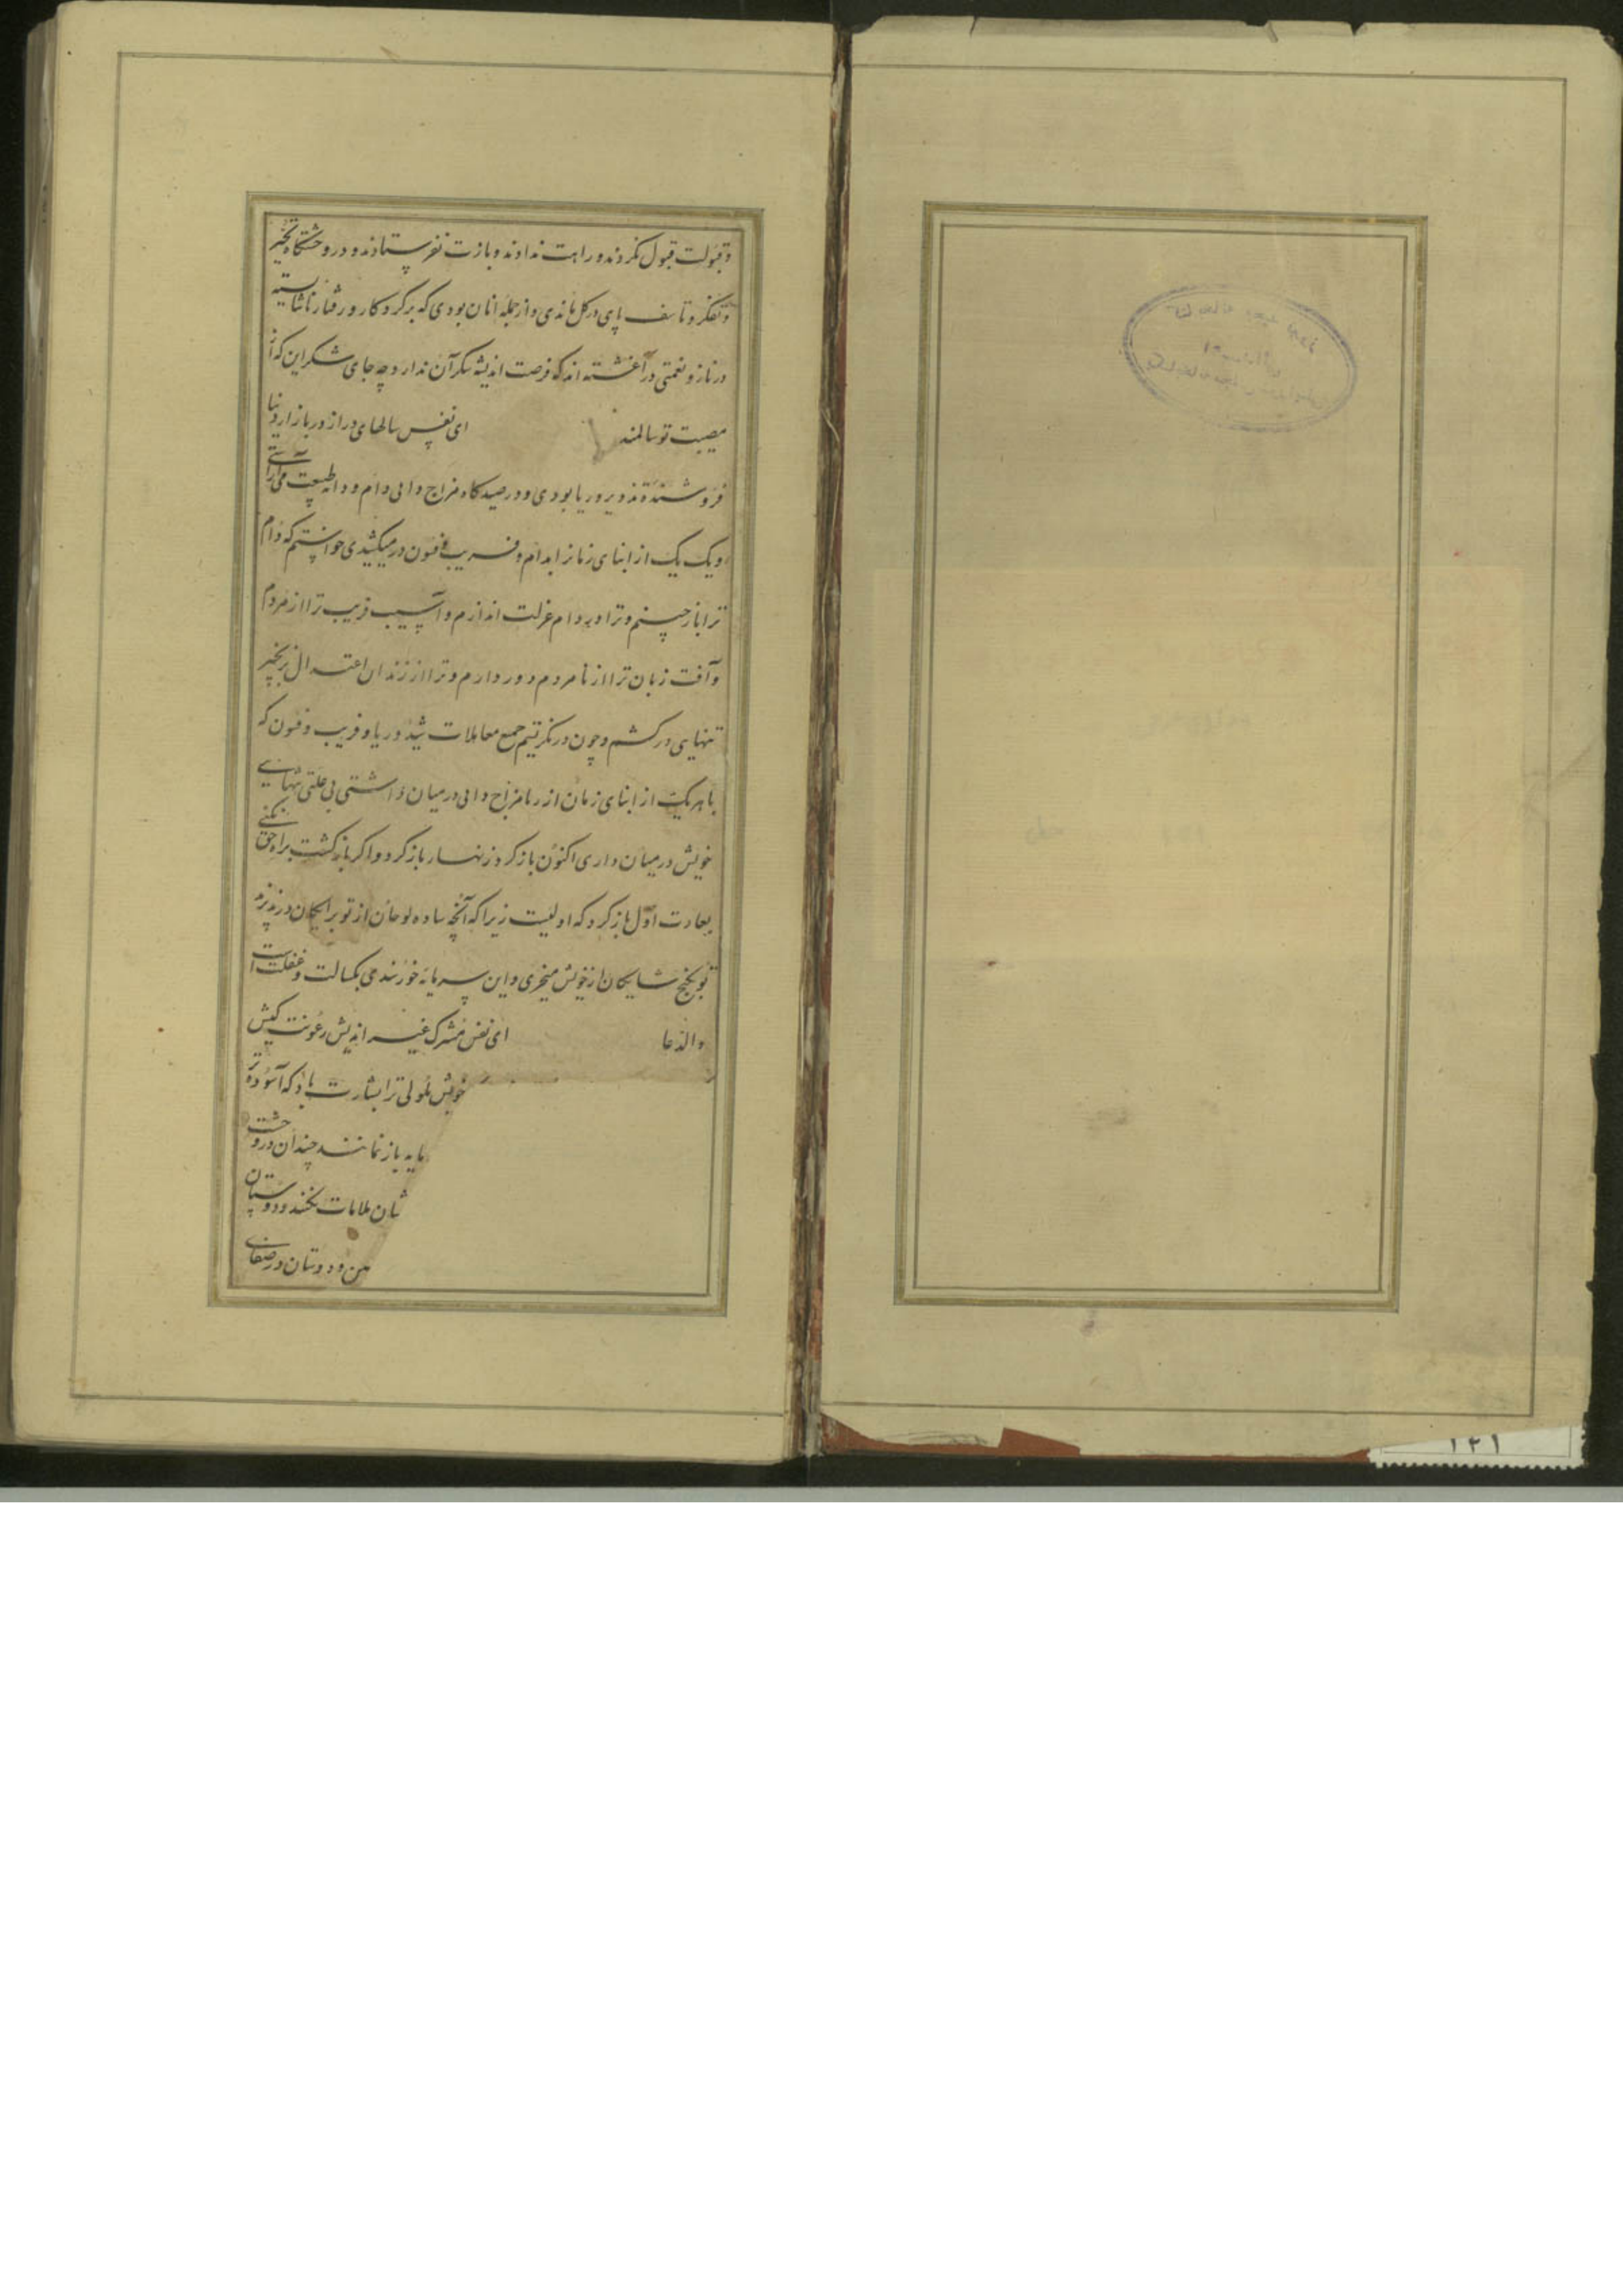 و قبولت قبول نکردند و راهت ندادند و بازت نفرستادند و در وحشتگاه تحیر
و تفکر و تاسف پای در کل ماندی و از جمله آنان بودی که بر کرد کار و رفتار ناشایسته
در ناز و نعمتی در آغشته اند که فرصت اندیشه شکر آن ندارد چه جای شکر این که از
مصیبت تو سالمند ای نفس سالهای دراز در بازار دنیا
فروشنده تذویر و ریا بودی و در صیدکاه مزاج دانی دام و دانه طبیعت می آراستی
و یک یک از ابنای زمانرا بدام و فریب و فسون در میکشیدی خواستم که دام
ترا باز چینم و ترا در دام عزلت اندازم و آسیب فریب ترا از مردم
و آفت زبان ترا از نامردم دور دارم و ترا از زندان اعتدال بزنجیر
تنهایی در کشم و چون در نکریستم جمیع معاملات شید و ریا و فریب و فسون که
با هر یک از ابنای زمان از راه مزاج دانی در میان داشتی بی علتی تنهایی
خویش در میان داری اکنون باز کرد زنهار باز کرد و اکر بازکشت براه حق نکنی
بعادت اول باز کرد که اولیست زیرا که آنچه ساده لوحان از تو برایکان در پذیرند
تو بکنج شایکان از خویش میخری و این سرمایه خورسندی کسالت و غفلت است
والدعا ای نفس مشرک غیر اندیش رعونت کیش
خویش ترا بشارت باد که آسوده تر
مایه باز نمانند چندان در وحشت
شان ملامات بخشند و دوستان
من و دوستان در صفای
۱۲۱